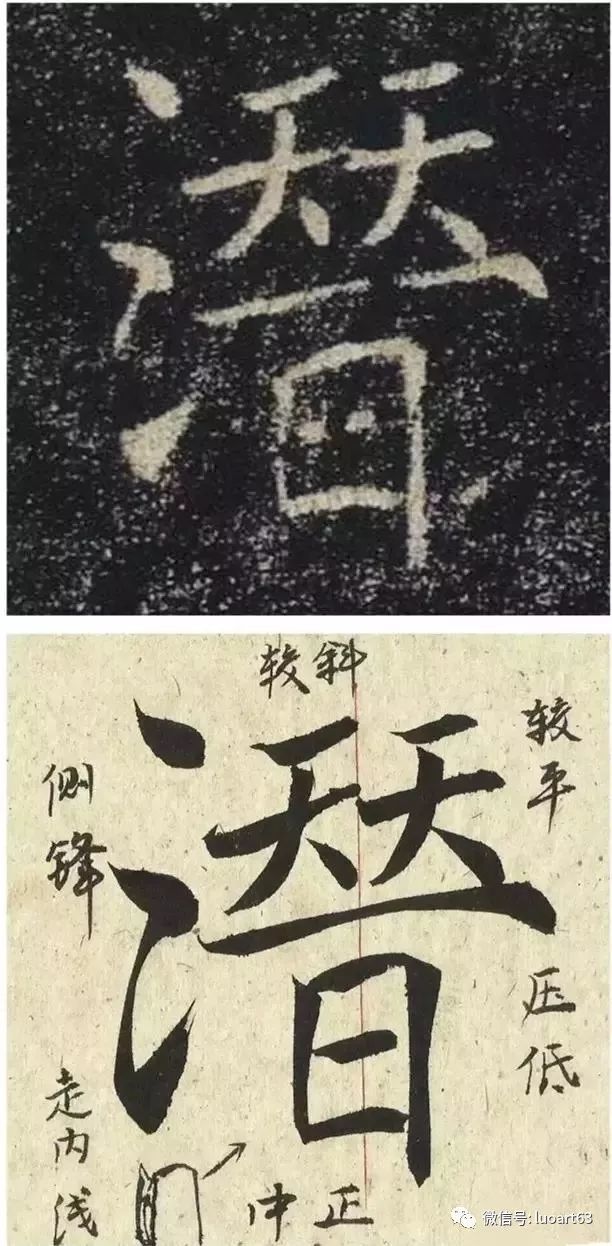 潜
较斜
较平
侧锋
潜
压低
走内浅
中正
微信号: luoart63